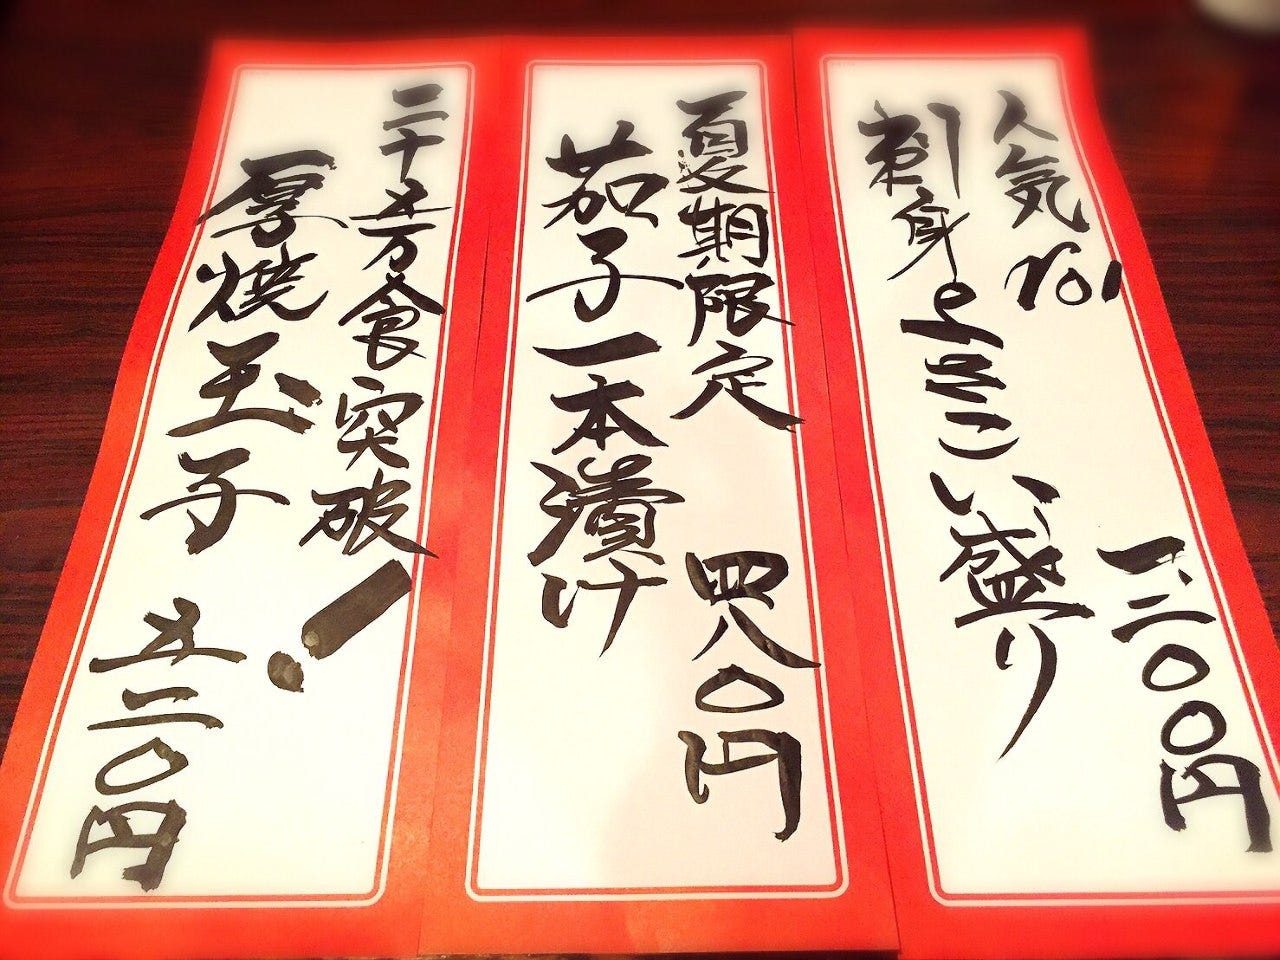 人気No1
刺身よさこい盛り
一二〇〇円
夏期限定
茄子一本漬け
四八〇円
二十五万食突破!
厚焼玉子
五二〇円